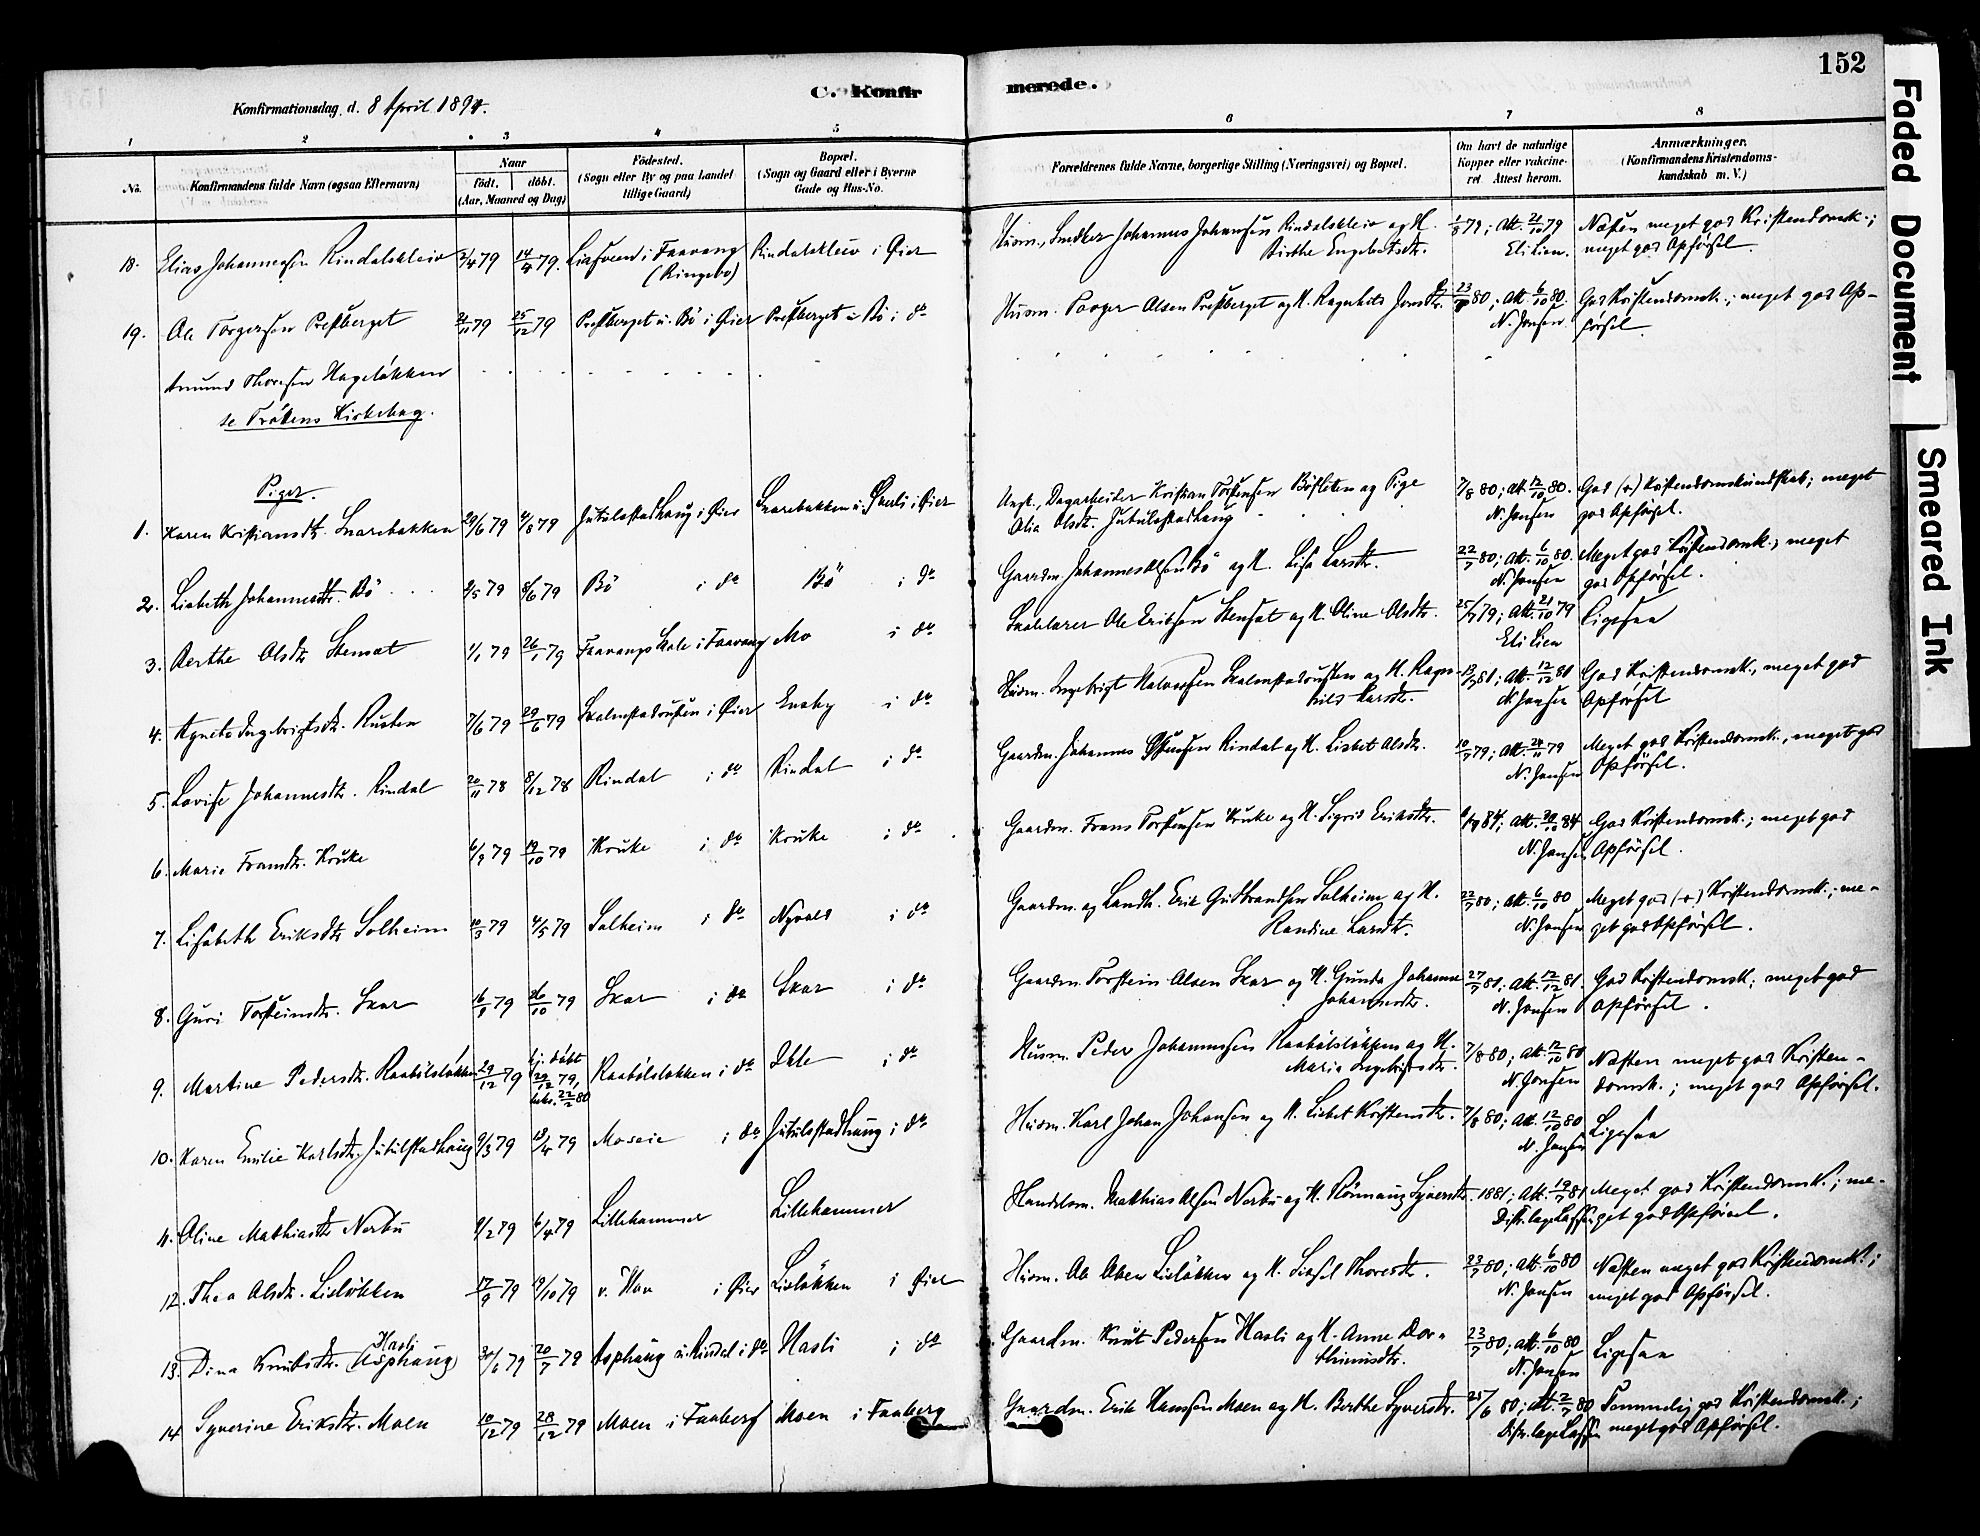 152
C. Konfirmerede.
Konfirmationsdag, d. 8 April 1894.
1 2 3 4 5 6 7 8
No.
Konfirmandens fulde Navn (ogsaa Efternavn)
Naar
födt. döbt.
(Aar, Maaned og Dag)
Födested.
(Sogn eller By og paa Landet
tillige Gaard)
Bopæl.
(Sogn og Gaard eller i Byerne
Gade og Hus-No.
Forældrenes fulde Navne, borgerlige Stilling (Næringsvei) og Bopæl.
Om havt de naturlige
Kopper eller vakcine-
ret Attest herom.
Anmærkninger.
(Konfirmandens Kristendoms-
kundskab m. V.)
18. Elias Johannesen Rindalskleiv 2/4 79 14/4 79. i Faavang (Ringebo) Rindalskleiv i Øier
Husm., Smedker Johannes Johansen Rindalskleiv og H. Birthe Engebretsdtr. 79; Att. 21/10 79 Eli Lien. Næsten meget god Kristendomsk.; meget god Opförsel.
19. Ole Torgersen Prestberget 21/11 79 25/12 79 Prestberget u. Bö i Øier Prestberget u. Bö i do
Husm. Torger Olsen Prestberget og H. Ragnhild 23/7 80; Att. 6/10 80. N. Jonsen. God Kristendomsk.; meget god Opförsel.
Amund Thoresen Hageløkken
se Tröttens Kirkebog.
Piger.
1. Karen Kristiansdtr. Snarebakken 29/6 79 4/8 79 Jutulstadhaug i Øier Snarebakken u. Skuli i Øier
Ungk., Dagarbeider Kristian Torstensen Böfleten og Pige Olia Olsdtr. Jutulstadhaug 7/8 80; Att. 12/10 80. N. Jonsen God (+) Kristendomskundskab; meget god Opførsel.
2. Lisbeth Johannesdtr. Bö 2/5 79 8/6 79 Bö i do Bö i do
Gaardm. Johannes Olsen Bö og H. Lisa Larsdtr. 22/7 80; Att. 6/10 80. N. Jonsen Meget god Kristendomsk.; meget god Opförsel.
3. Berthe Olsdtr. Stensat 1/1 79 26/1 79 Faavangs Skole i Faavang Mo i do
Skolelærer Ole Eriksen Stensat og H. Oline Olsdtr. 25/9 79; Att. 21/10 79 Eli Lien Ligesaa
4. Agnete Ingebrigtsdtr. Rusten 7/6 79 29/6 79 Skalmstadrusten i Øier Eneby i do
Husm. Ingebrigt Halvorsen Skalmstadrusten og H. Ragnhild Larsdtr. 13/7 81; Att. 12/12 81 N. Jonsen God Kristendomsk., meget god Opförsel
5. Lovise Johannesdtr. Rindal 20/11 78 8/12 78 Rindal i do Rindal i do
Gaardm. Johannes Rindal og H. Lisbet Olsdtr. 10/7 79; Att. 24/11 79 N. Jonsen Meget god Kristendomsk., meget god Opförsel.
6. Marie Fransdtr. Kruke 6/9 79 19/10 79 Kruke i do Kruke i do
Gaardm. Frans Torstensen Kruke og H. Sigrid Eriksdtr. 84; Att. 84 N. Jonsen God Kristendomsk.; meget god Opförsel.
7. Lisabeth Eriksdtr. Solheim 10/3 79 4/5 79 Solheim i do Nyvold i do
Gaardm. og Landh. Erik Gudbrandsen Solheim og H. Randine Larsdtr. 22/7 80; Att. 6/10 80 N. Jonsen Meget god (+) Kristendomsk.; meget god Opförsel.
8. Guri Torsteinsdtr. Skar 16/9 79 26/10 79 Skar i do Skar i do
Gaardm. Torstein Olsen Skar og H. Gunda Johanne Johannesdtr. 27/7 81; Att. 12/12 81. N. Jonsen God Kristendomsk.; meget god Opförsel.
9. Martine Pedersdtr. Raabölsløkken 29/12 79 hj. döbt 29/12 79, bekr. 22/2 80 Raabölsløkken i do i do
Husm. Peder Johannessen Raabölsløkken og H. Marie Ingebrigtsdtr. 7/8 80; Att. 12/10 80 N. Jonsen Næsten meget god Kristendomsk.; meget god Opførsel.
10. Karen Emilie Karlsdtr. Jutulstadhaug 9/3 79 13/4 79 Moseie i do Jutulstadhaug i do
Husm. Karl Johan Johansen og H. Lisbet Kristensdtr. 7/8 80; Att. 12/10 80 N. Jonsen Ligesaa
11. Oline Mathiasdtr. Nerbu 9/2 79 6/4 79 Lillehammer Lillehammer
Handelsm. Mathias Olsen Nerbu og H. Rönnaug Syversdtr. 1881; Att. 19/7 81 Distr.læge Lassen Meget god Kristendomsk.; meget god Opförsel.
12. Thea Olsdtr. Lieløkken 17/9 79 19/10 79 i Øier Lieløkken i Øier
Husm. Ole Olsen Lieløkken og H. Sidsel Thoresdtr. 23/7 80; Att. 6/10 80 N. Jonsen Næsten meget god Kristendomsk.; meget god Opförsel.
13. Dina Knudsdtr. Hasli (Asphaug) 30/6 79 20/7 79 Asphaug u. Rindal i do Hasli i do
Gaardm. Knut Pedersen Hasli og H. Anne Dorthinusdtr. 23/7 80; Att. 6/10 80 N. Jonsen Ligesaa
14. Syverine Eriksdtr. Moen 10/12 79 28/12 79 Moen i Faaberg Moen i Faaberg
Gaardm. Erik Hansen Moen og H. Berthe Syversdtr. 25/6 80; Att. 2/7 80 Distr.læge Lassen Temmelig god Kristendomsk.; meget god Opförsel.
Faded Document
Smeared Ink